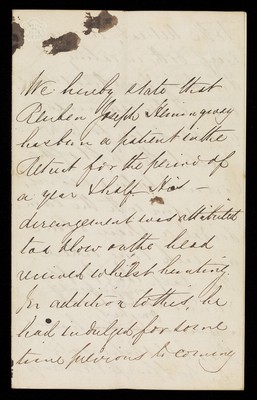 We hereby state that
Reuben Joseph Hemingway
has been a patient in the
Retreat for the period of
a year & half His –
derangement was attributed
to a blow on the head
received whilst hunting.
In addition to this, he
had indulged for some
time previous to coming